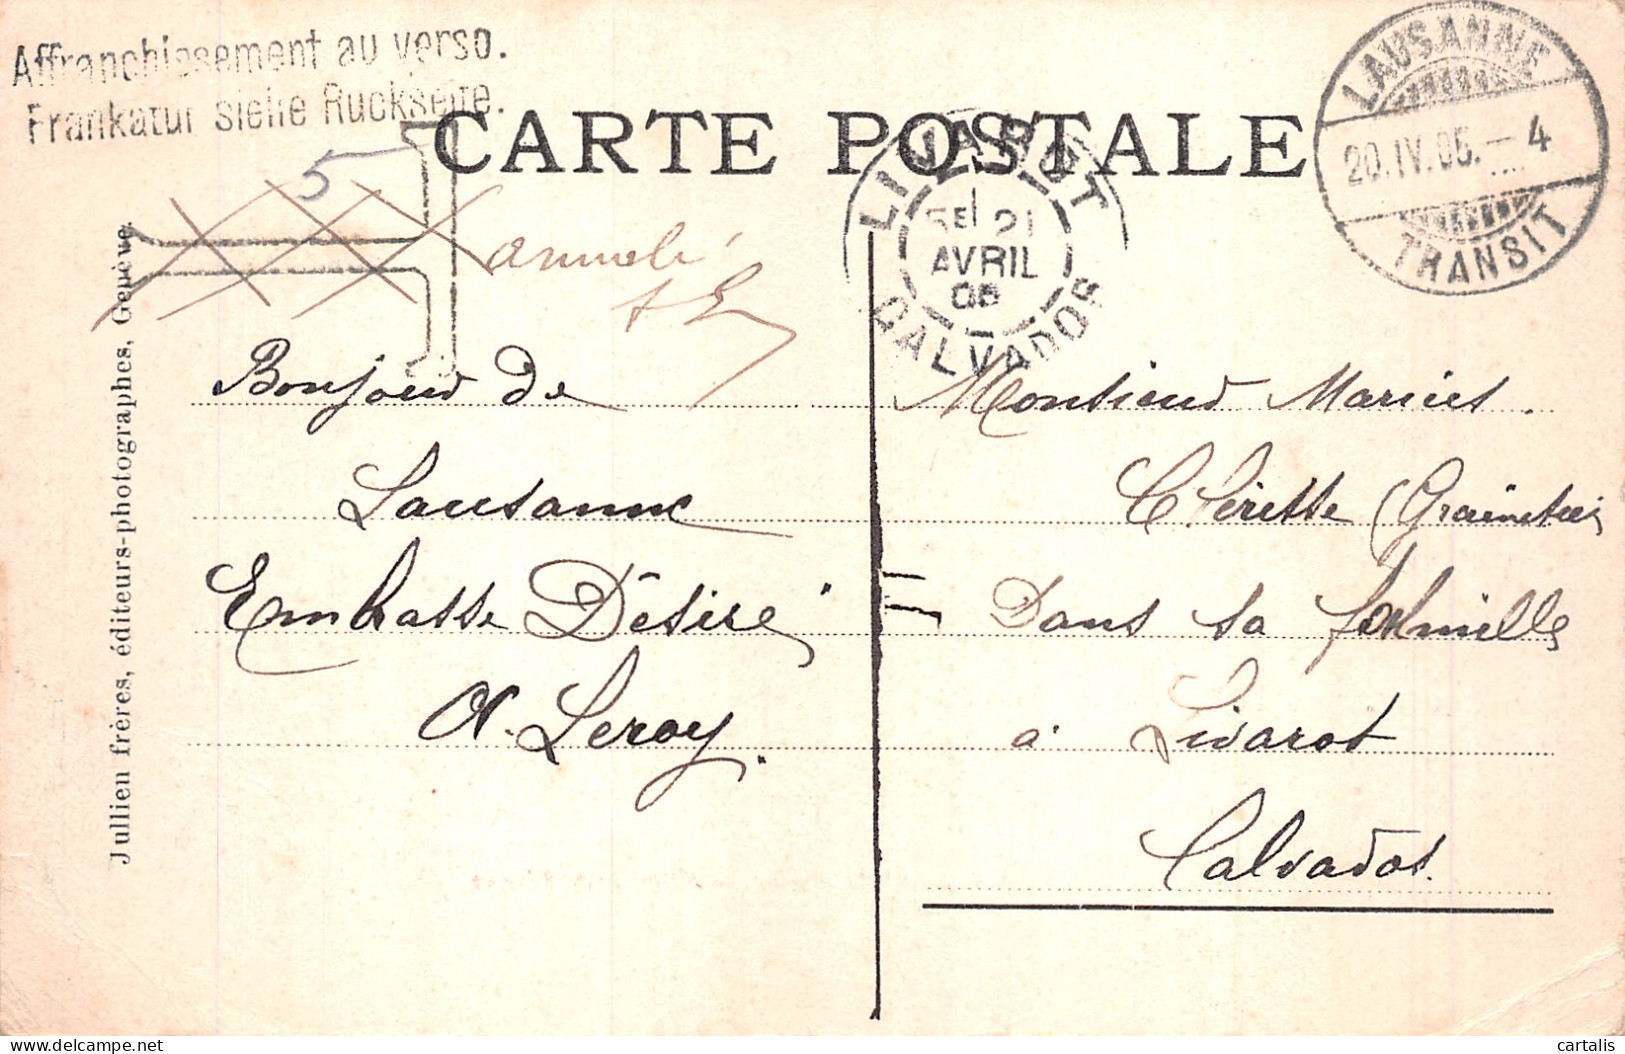 Affranchissement au verso.
Frankatur siehe Rückseite.
CARTE POSTALE
LAUSANNE
20.IV.05.-4
TRANSIT
LIVAROT
5E 21
AVRIL
05
CALVADOS
T
5
annulé
Jullien frères, éditeurs-photographes, Genève.
Bonjour de
Lausanne
Embrasse Désiré
A. Leroy.
Monsieur Marius
(Grainetier
Dans sa famille
à Livarot
Calvados.
delcampe.net
cartalis